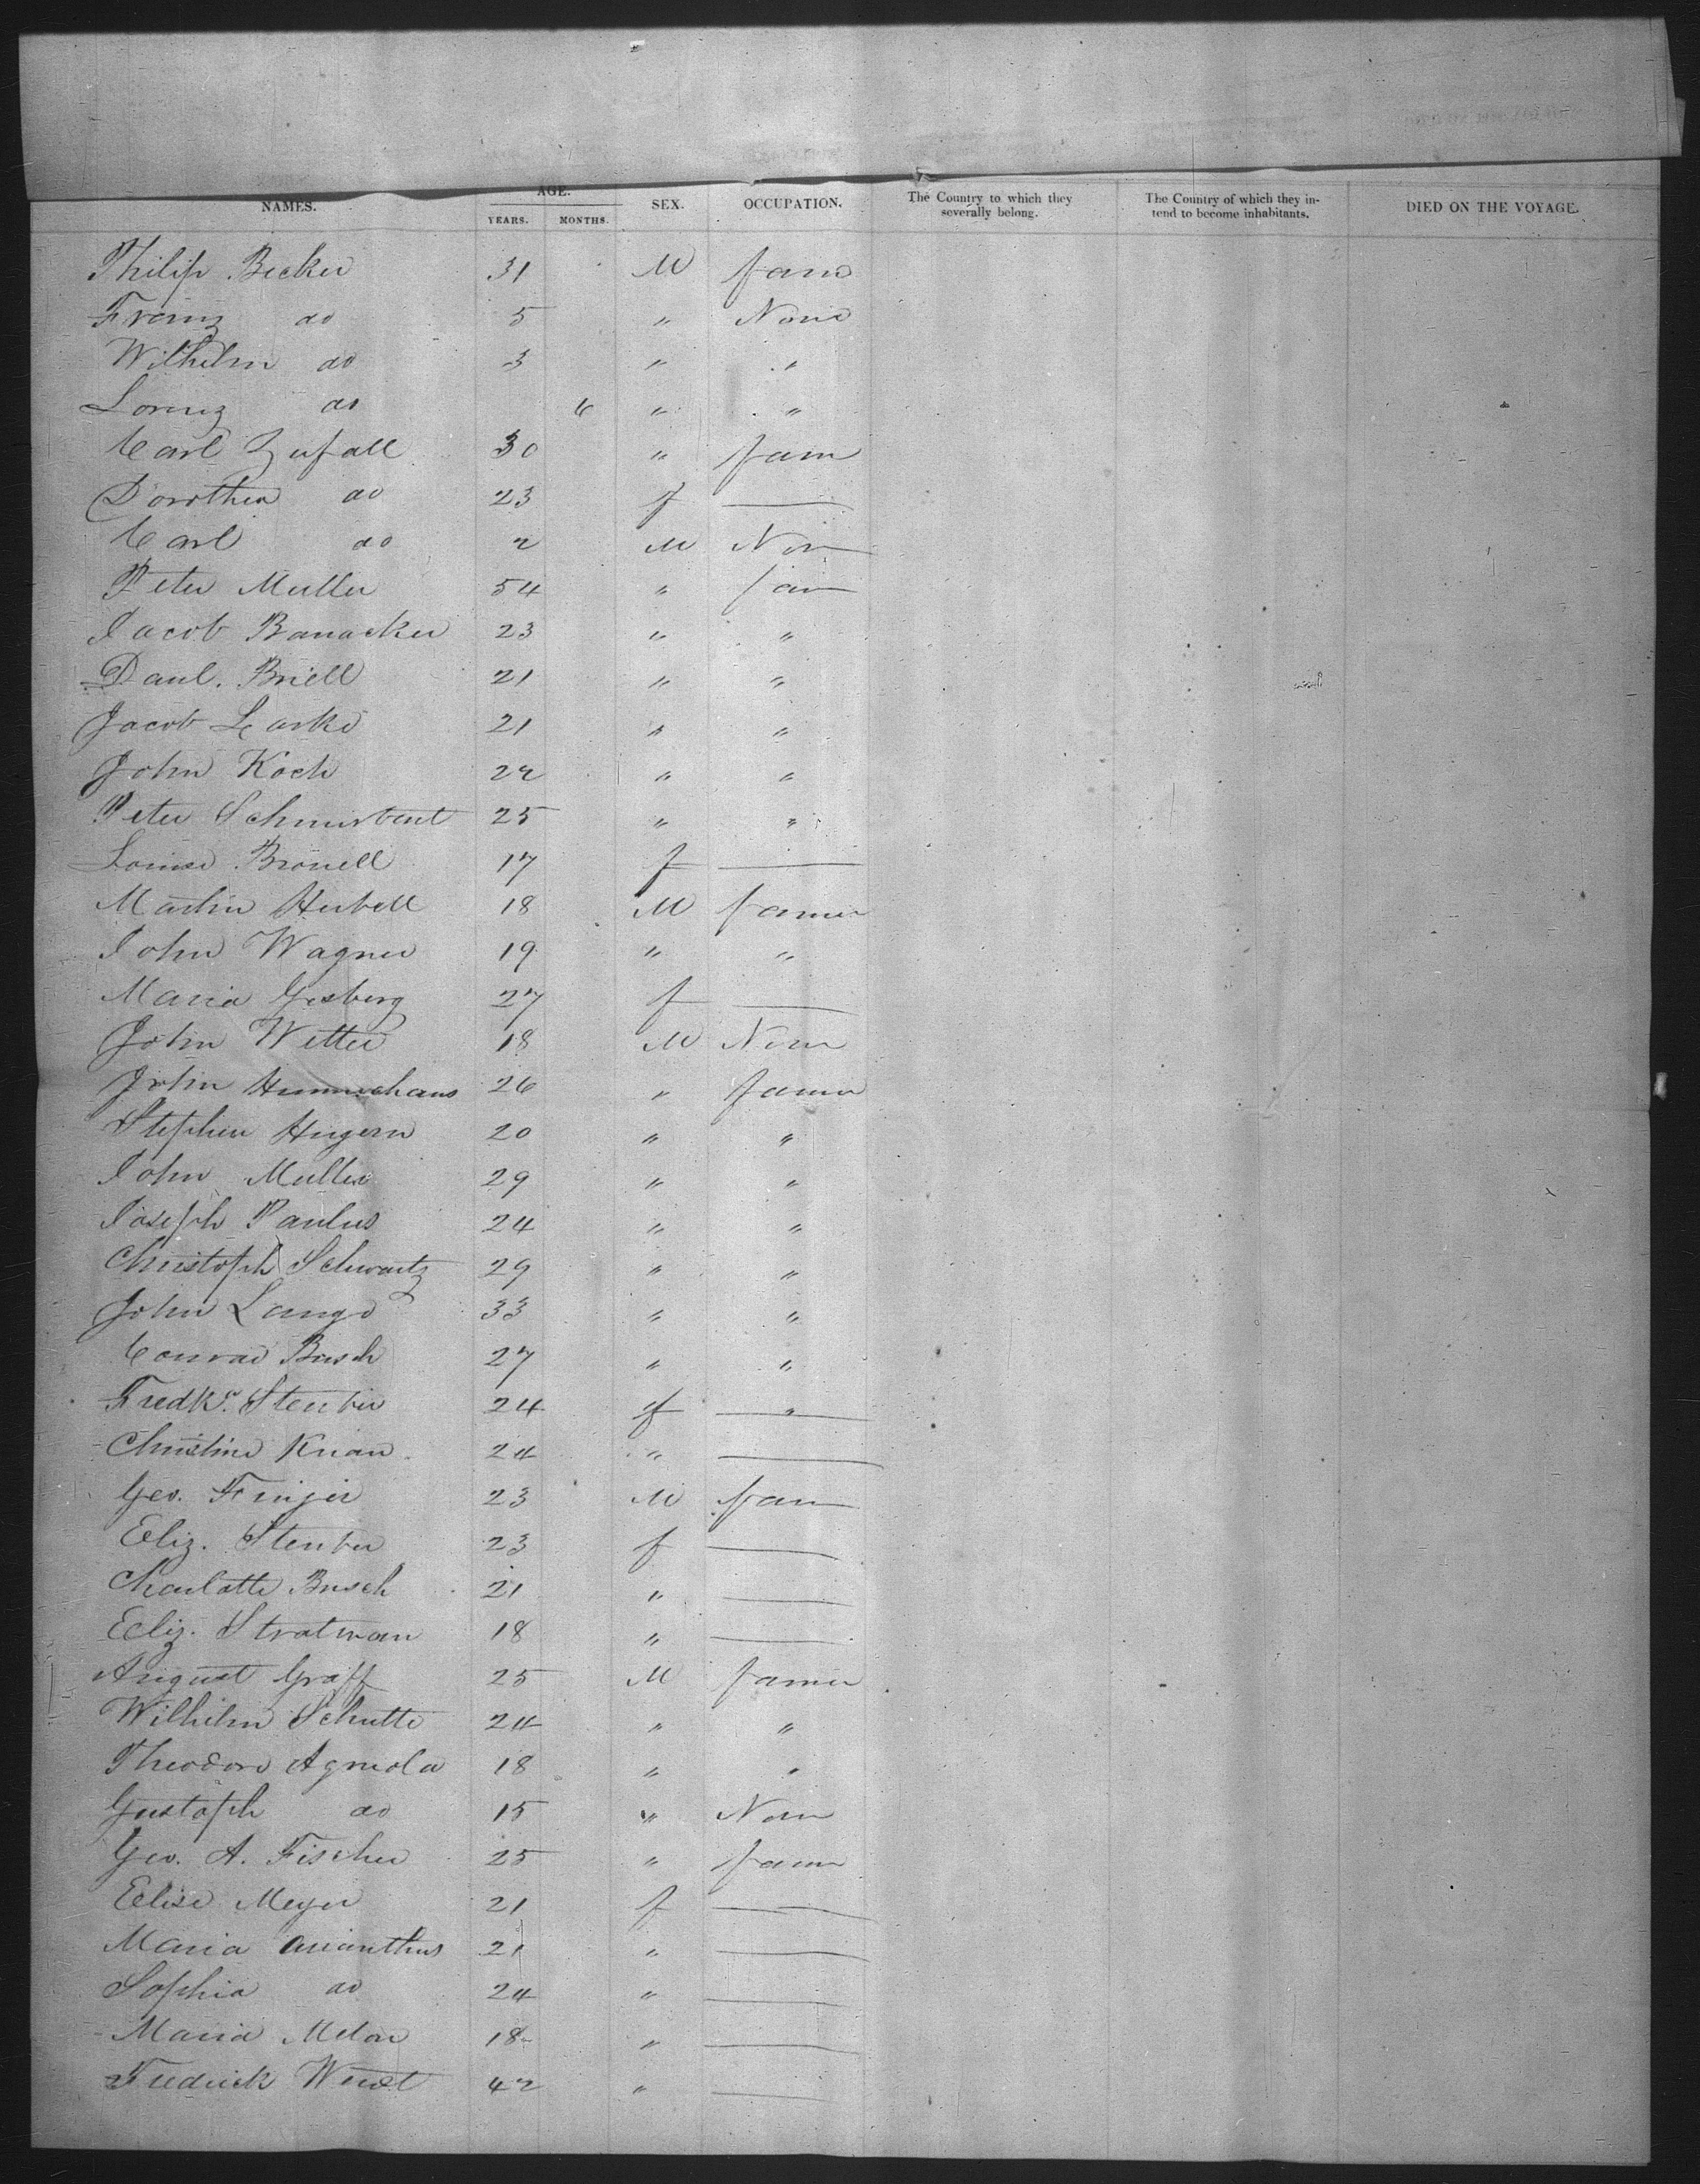 NAMES. AGE. YEARS. MONTHS. SEX. OCCUPATION. The Country to which they severally belong. The Country of which they intend to become inhabitants. DIED ON THE VOYAGE.
Philip Becker 31 M farm
Franz do 5 " None
Wilhelm do 3 " "
Lorenz do 6 " "
Carl Zufall 30 " farm
Dorothea do 23 f —
Carl do 2 M Non
Peter Muller 54 " farm
Jacob Banacker 23 " "
Danl. Briell 21 " "
Jacob 21 " "
John Koch 22 " "
Peter 25 " "
Louise Bronell 17 f —
Martin Herbell 18 M Farmer
John Wagner 19 " "
Maria Gesberg 27 f —
John Witter 18 M None
John 26 " Farmer
Stephen Hugern 20 " "
John Muller 29 " "
Joseph Paulus 24 " "
Christoph Schwartz 29 " "
John Lange 33 " "
Conrad Busch 27 " "
Fredk. Steuber 24 f "
Christine Knau 24 " —
Geo. Finger 23 M Farm
Eliz. Steuber 23 f —
Charlotte Busch 21 " —
Eliz. Stratman 18 " —
August Graff 25 M Farmer
Wilhelm Schutte 24 " "
Theodore Agricola 18 " "
Gustoph do 15 " None
Geo. A. Fischer 25 " Farmer
Elise Meyer 21 f —
Maria Arianthus 21 " —
Sophia do 24 " —
Maria Melar 18 " —
Fredrick 42 " —